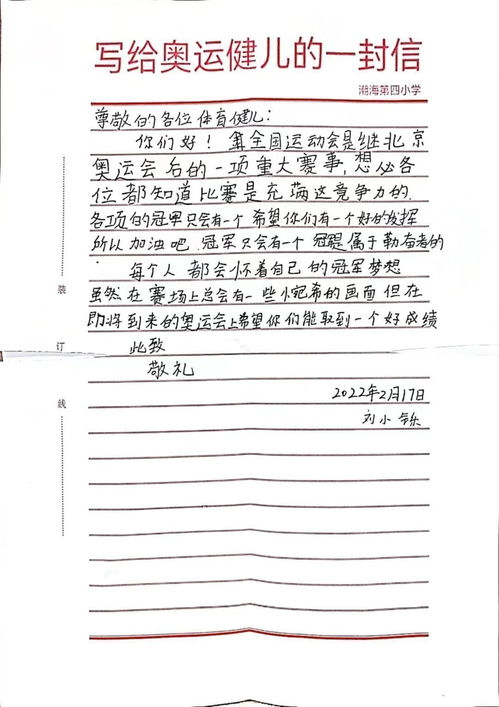 写给奥运健儿的一封信
潮海第四小学
尊敬的各位体育健儿：
你们好！第全国运动会是继北京
奥运会后的一项重大赛事，想必各
位都知道比赛是充满这竞争力的，
各项的冠军只会有一个希望你们有一个好的发挥
所以加油吧，冠军只会有一个 冠军是属于勤奋者的
每个人都会怀着自己的冠军梦想
虽然在赛场上总会有一些惋的画面但在
即将到来的奥运会上希望你们能取到一个好成绩
此致
敬礼
2022年2月17日
刘小
装
订
线